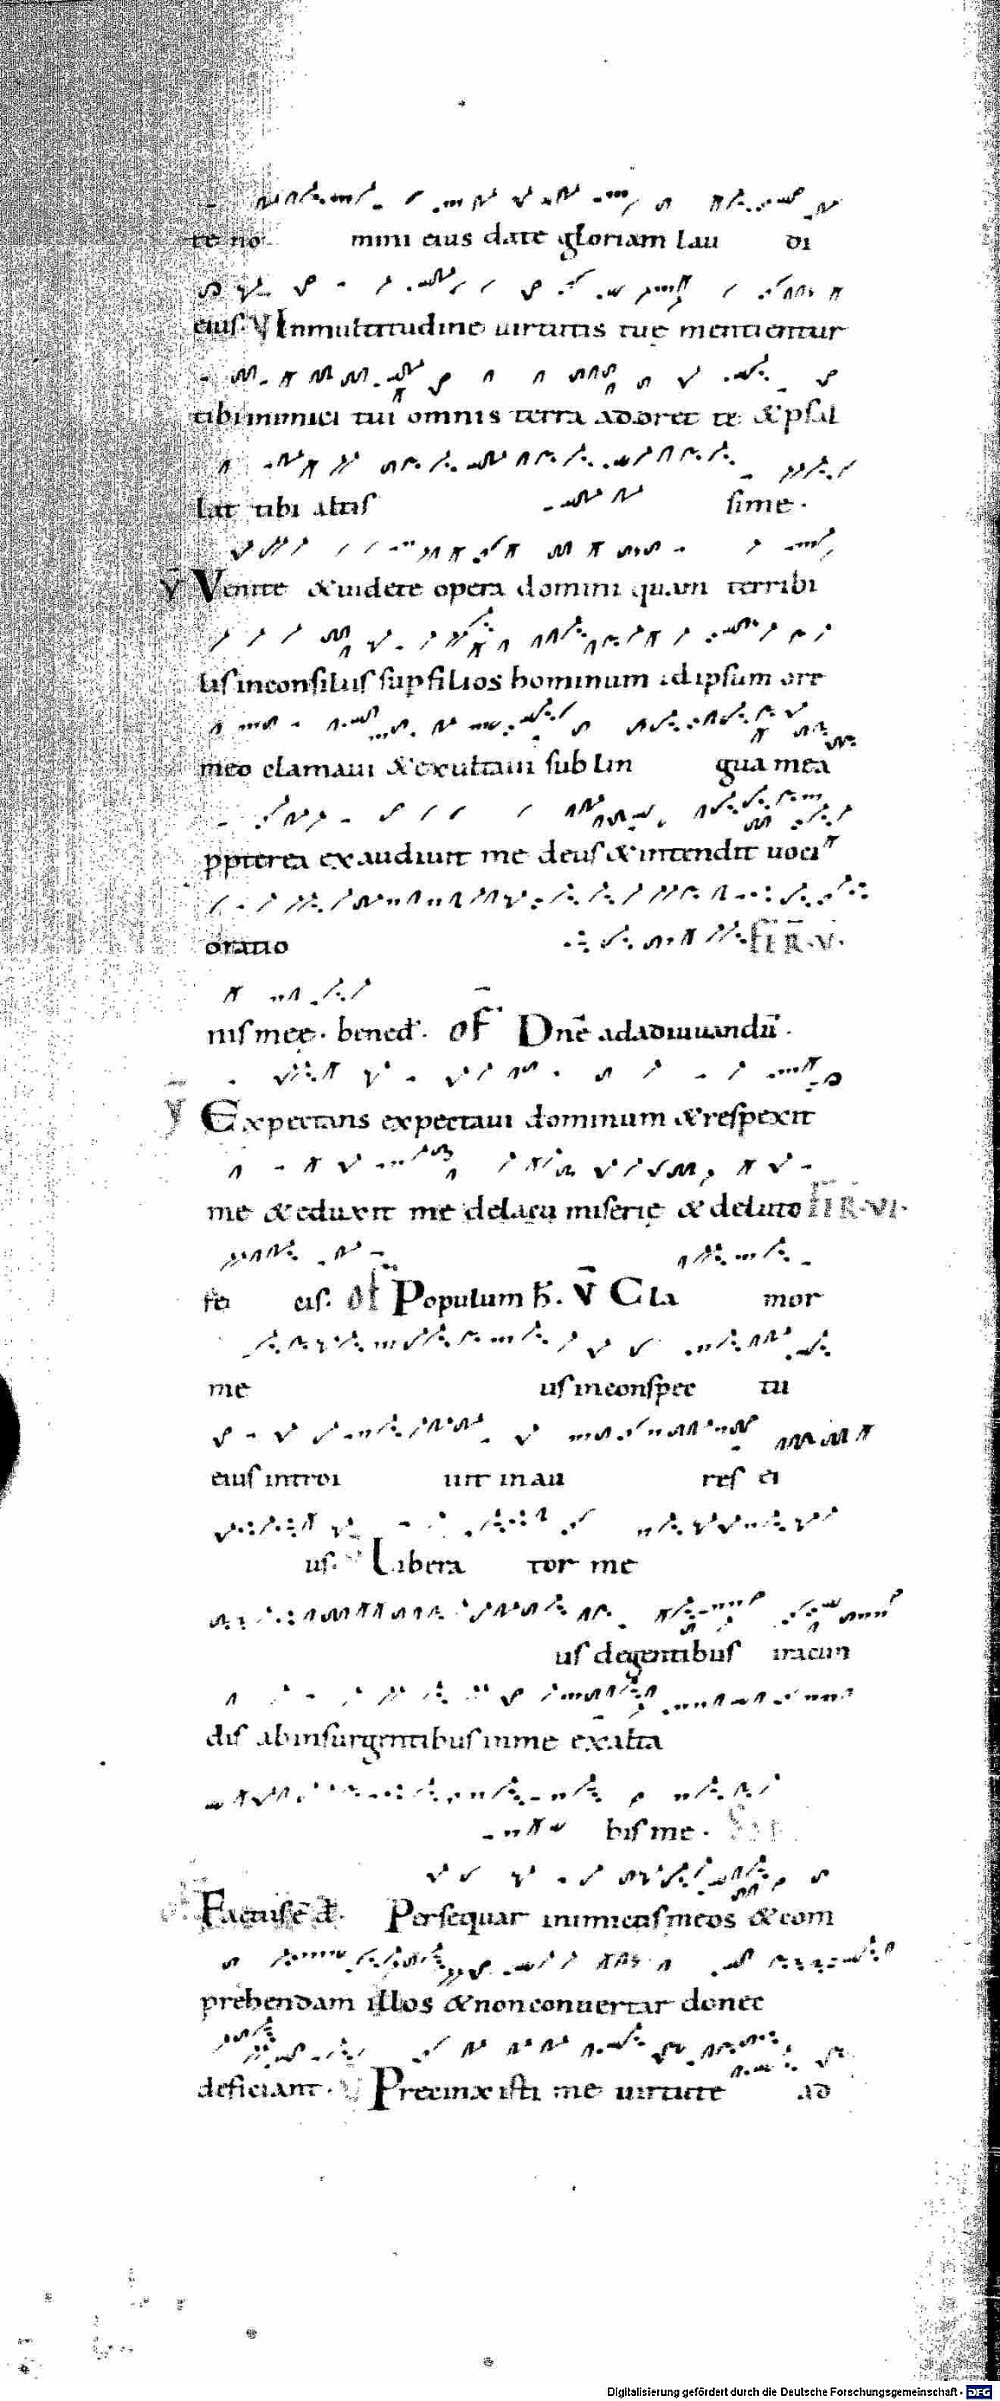 te no mini eius date gloriam lau di
eius. V Inmultitudine uirtutis tuę mentientur
tibi inimici tui omnis terra adoret te & psal
lat tibi altis sime.
V̄ Venite & uidete opera domini quam terribi
lis inconsiliis sup filios hominum adipsum ore
meo clamaui & exultaui sub lin gua mea
ppterea exaudiuit me deus & intendit uoci
oratio FER. V.
nis meę. bened. OF Dnē adadiuuandū.
V̄ Expectans expectaui dominum & respexit
me & eduxit me delacu miserię & deluto FER. VI.
fe cis. OF Populum h̄. V̄ Cla mor
me us inconspec tu
eius introi uit inau res ei
us. V Libera tor me
us degentibus iracun
dis abinsurgentibus inme exalta
bis me.
Factus ē d. Persequar inimicus meos & com
prehendam illos & nonconuertar donec
deficiant. V Precinxisti me uirtute ad
Digitalisierung gefördert durch die Deutsche Forschungsgemeinschaft - DFG